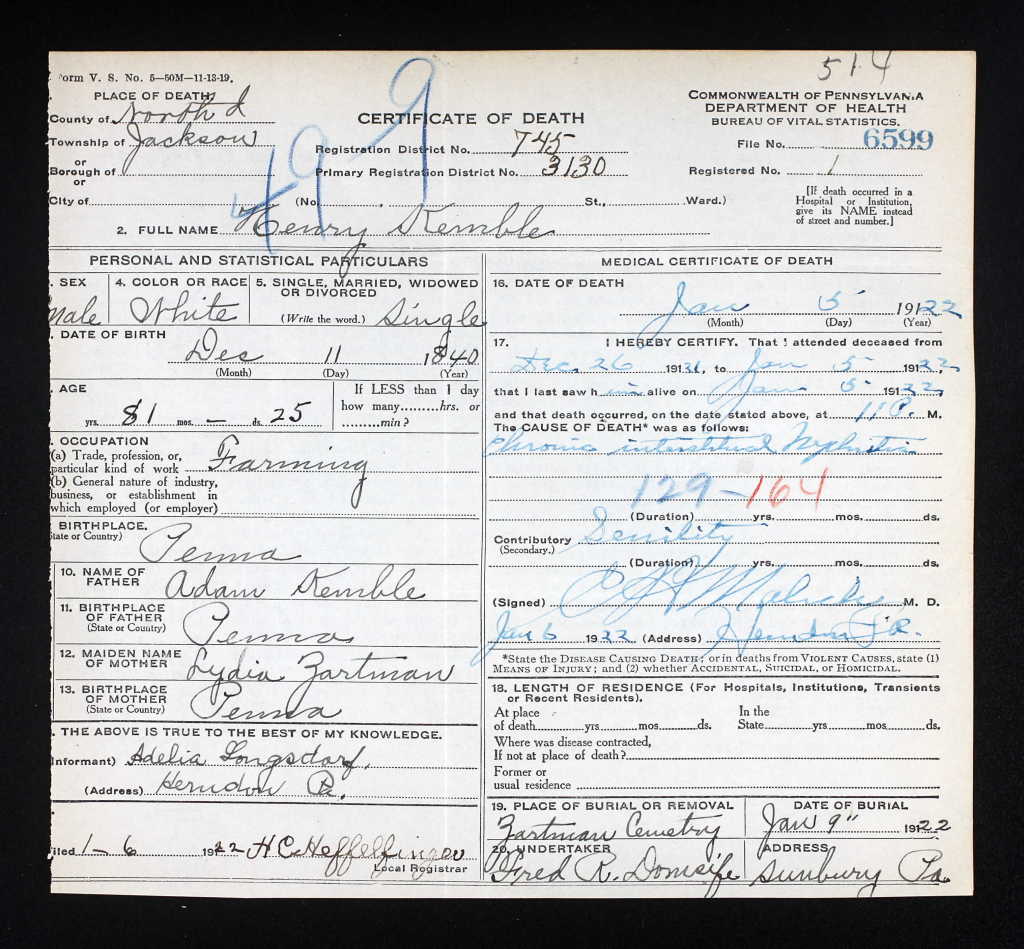 514
Form V. S. No. 5—50M—11-13-19.
PLACE OF DEATH
County of North'd
Township of Jackson
or
Borough of
or
City of
499
CERTIFICATE OF DEATH
Registration District No. 745
Primary Registration District No. 3130
(No. St., Ward.)
COMMONWEALTH OF PENNSYLVANIA
DEPARTMENT OF HEALTH
BUREAU OF VITAL STATISTICS.
File No. 6599
Registered No. 1
[If death occurred in a
Hospital or Institution,
give its NAME instead
of street and number.]
2. FULL NAME Henry Kemble
PERSONAL AND STATISTICAL PARTICULARS
. SEX
Male
4. COLOR OR RACE
White
5. SINGLE, MARRIED, WIDOWED
OR DIVORCED
(Write the word.) Single
. DATE OF BIRTH
Dec 11 1840
(Month) (Day) (Year)
. AGE
yrs. 81 mos. — ds. 25
If LESS than 1 day
how many........hrs. or
.........min?
. OCCUPATION
(a) Trade, profession, or,
particular kind of work Farming
(b) General nature of industry,
business, or establishment in
which employed (or employer)
. BIRTHPLACE.
State or Country)
Penna
10. NAME OF
FATHER
Adam Kemble
11. BIRTHPLACE
OF FATHER
(State or Country)
Penna
12. MAIDEN NAME
OF MOTHER
Lydia Zartman
13. BIRTHPLACE
OF MOTHER
(State or Country)
Penna
. THE ABOVE IS TRUE TO THE BEST OF MY KNOWLEDGE.
Informant) Adelia Longsdorf.
(Address) Herndon Pa.
Filed 1-6 1922 H C Heffelfinger
Local Registrar
MEDICAL CERTIFICATE OF DEATH
16. DATE OF DEATH
Jan 5 19122
(Month) (Day) (Year)
17. I HEREBY CERTIFY. That I attended deceased from
Dec. 26 19121, to Jan 5 19122
that I last saw h im alive on Jan 5 19122
and that death occurred, on the date stated above, at 11 P. M.
The CAUSE OF DEATH* was as follows:
Chronic interstitial Nephritis
129-164
(Duration) yrs. mos. ds.
Contributory Senility
(Secondary.)
(Duration) yrs. mos. ds.
(Signed) M. D.
Jan 6 1922 (Address) Herndon Pa.
*State the DISEASE CAUSING DEATH; or in deaths from VIOLENT CAUSES, state (1)
MEANS OF INJURY; and (2) whether ACCIDENTAL, SUICIDAL, OR HOMICIDAL.
18. LENGTH OF RESIDENCE (For Hospitals, Institutions, Transients
or Recent Residents).
At place In the
of death yrs mos. ds. State yrs mos. ds.
Where was disease contracted,
If not at place of death?
Former or
usual residence
19. PLACE OF BURIAL OR REMOVAL
Zartman Cemetry
DATE OF BURIAL
Jan 9" 19122
20. UNDERTAKER
Fred R. Dornsife
ADDRESS
Sunbury Pa.